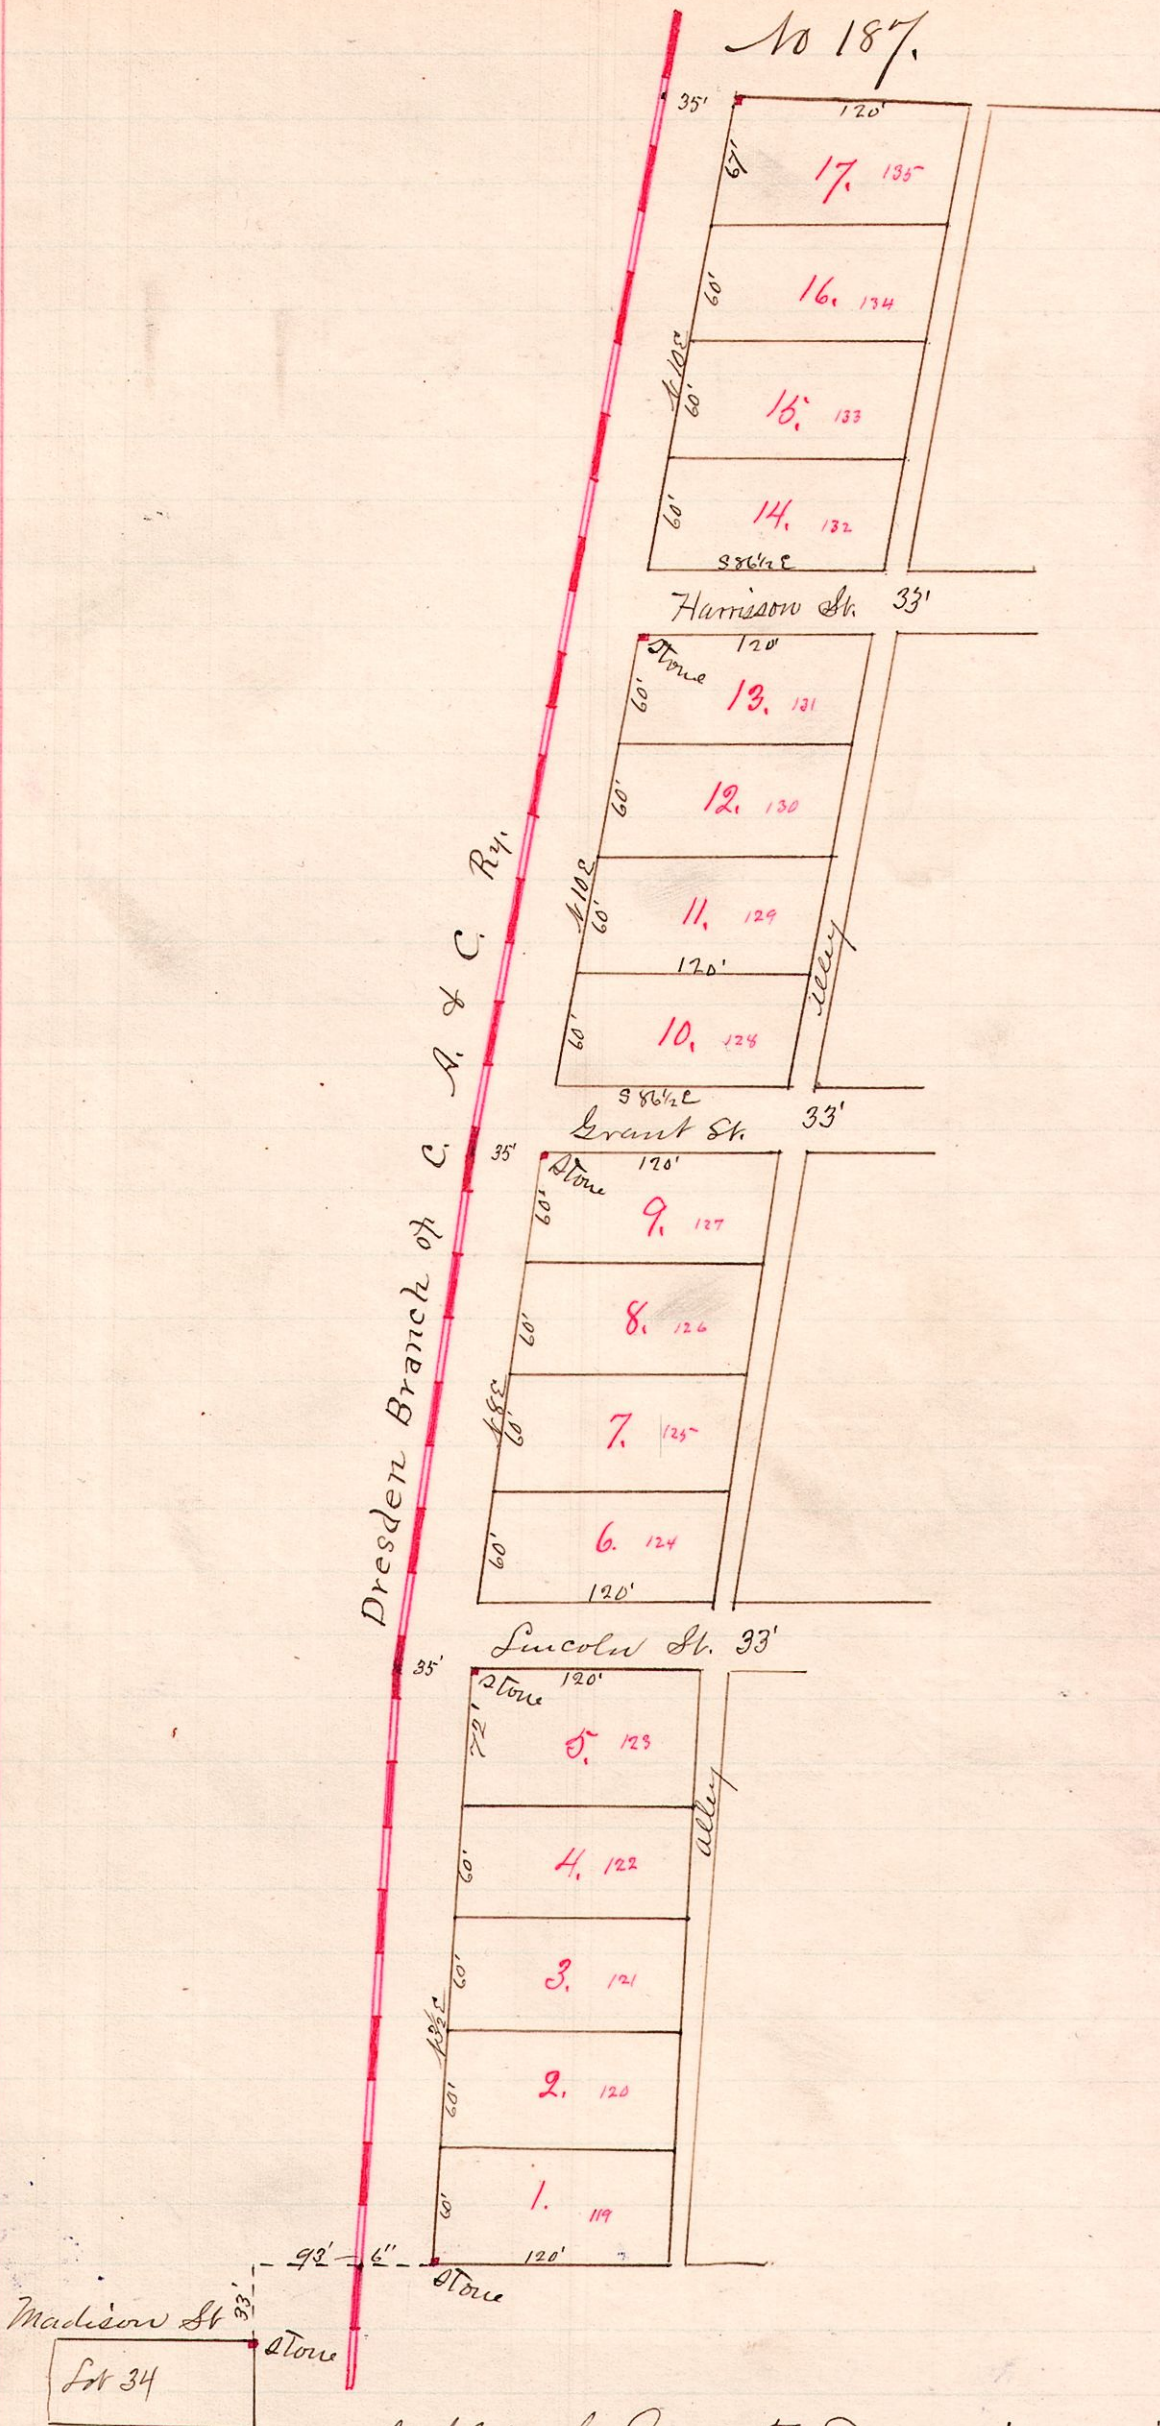 No 187.
35'
120'
67'
17. 135
60'
16. 134
N 10 E
60'
15. 133
60'
14. 132
S 86 1/2 E
Harrisson St. 33'
Stone
120'
60'
13. 131
60'
12. 130
N 10 E
60'
11. 129
120'
alley
60'
10. 128
S 86 1/2 E
Grant St. 33'
35'
Stone
120'
60'
9. 127
60'
8. 126
N 8 E
60'
7. 125
60'
6. 124
120'
Dresden Branch of C. A. & C. Ry.
Lincoln St. 33'
35'
Stone
120'
72'
5. 123
alley
60'
4. 122
60'
3. 121
N 3 1/2 E
60'
2. 120
60'
1. 119
93' - 6"
120'
Stone
33'
Madison St
Stone
Lot 34